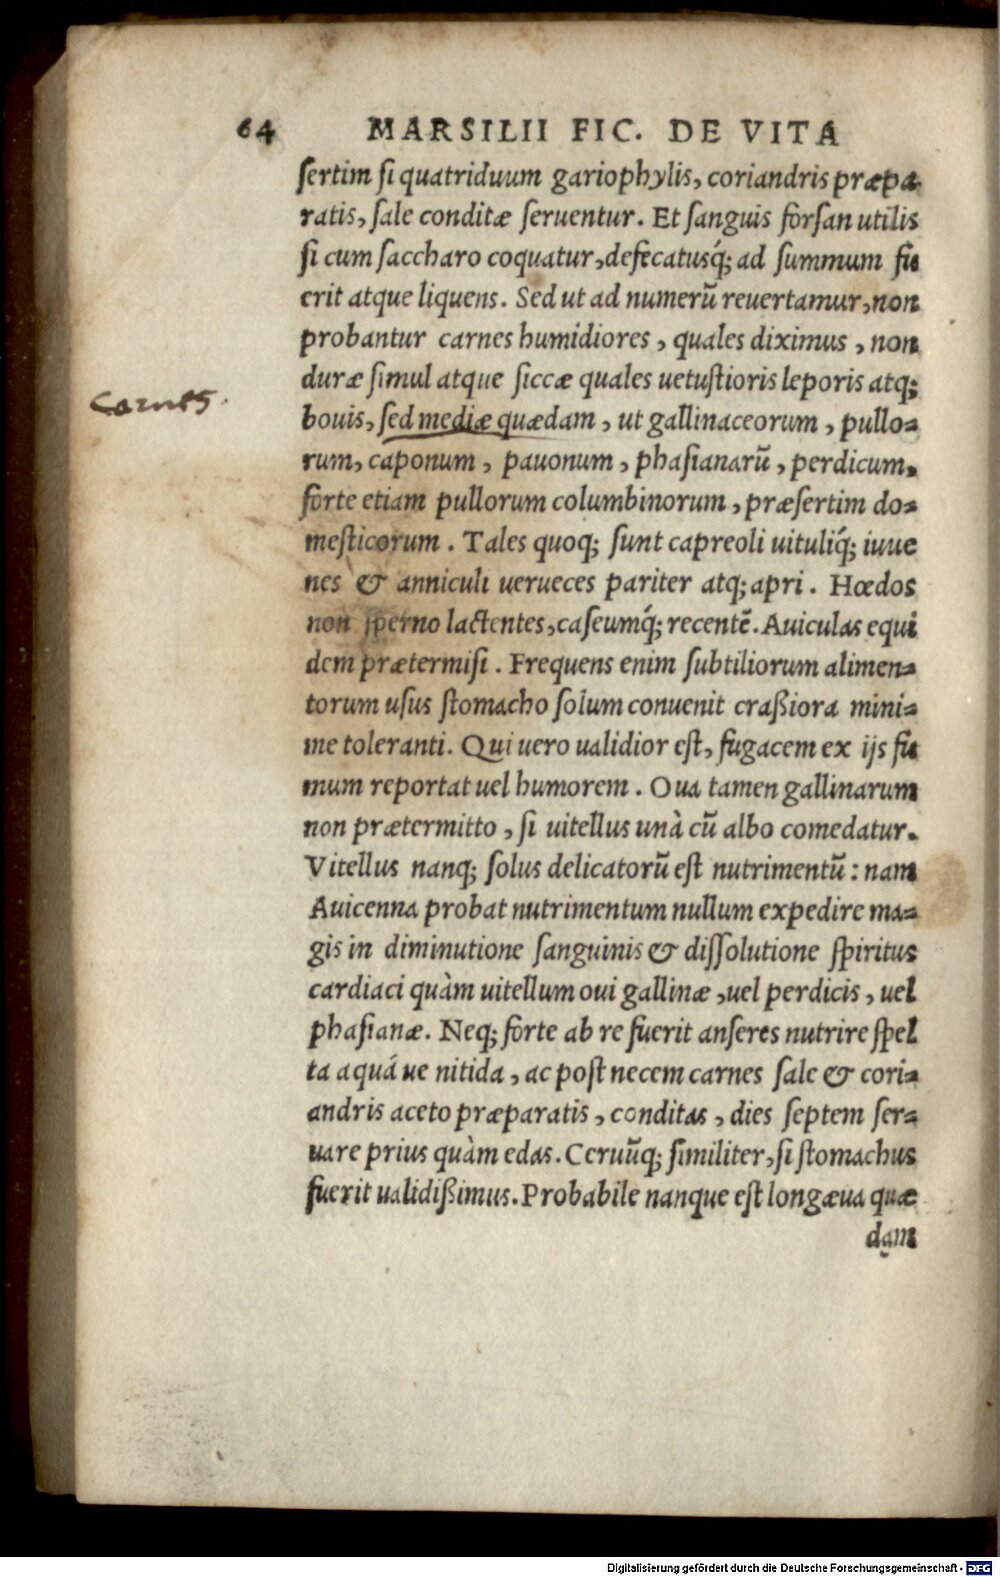 64 MARSILII FIC. DE VITA
sertim si quatriduum gariophylis, coriandris præpa
ratis, sale conditæ seruentur. Et sanguis forsan utilis
si cum saccharo coquatur, defecatusq́; ad summum fu
erit atque liquens. Sed ut ad numerū reuertamur, non
probantur carnes humidiores, quales diximus, non
duræ simul atque siccæ quales uetustioris leporis atq;
Carnes.
bouis, sed mediæ quædam, ut gallinaceorum, pullo=
rum, caponum, pauonum, phasianarū, perdicum,
forte etiam pullorum columbinorum, præsertim do=
mesticorum. Tales quoq; sunt capreoli uituliq́; iuue
nes & anniculi uerueces pariter atq; apri. Hœdos
non sperno lactentes, caseumq́; recentē. Auiculas equi
dem prætermisi. Frequens enim subtiliorum alimen=
torum usus stomacho solum conuenit craßiora mini=
me toleranti. Qui uero ualidior est, fugacem ex ijs fu
mum reportat uel humorem. Oua tamen gallinarum
non prætermitto, si uitellus unà cū albo comedatur.
Vitellus nanq; solus delicatorū est nutrimentū: nam
Auicenna probat nutrimentum nullum expedire ma=
gis in diminutione sanguinis & dissolutione spiritus
cardiaci quàm uitellum oui gallinæ, uel perdicis, uel
phasianæ. Neq; forte ab re fuerit anseres nutrire spel
ta aquá ue nitida, ac post necem carnes sale & cori=
andris aceto præparatis, conditas, dies septem ser=
uare prius quàm edas. Ceruūq; similiter, si stomachus
fuerit ualidißimus. Probabile nanque est longæua quæ
dam
Digitalisierung gefördert durch die Deutsche Forschungsgemeinschaft - DFG